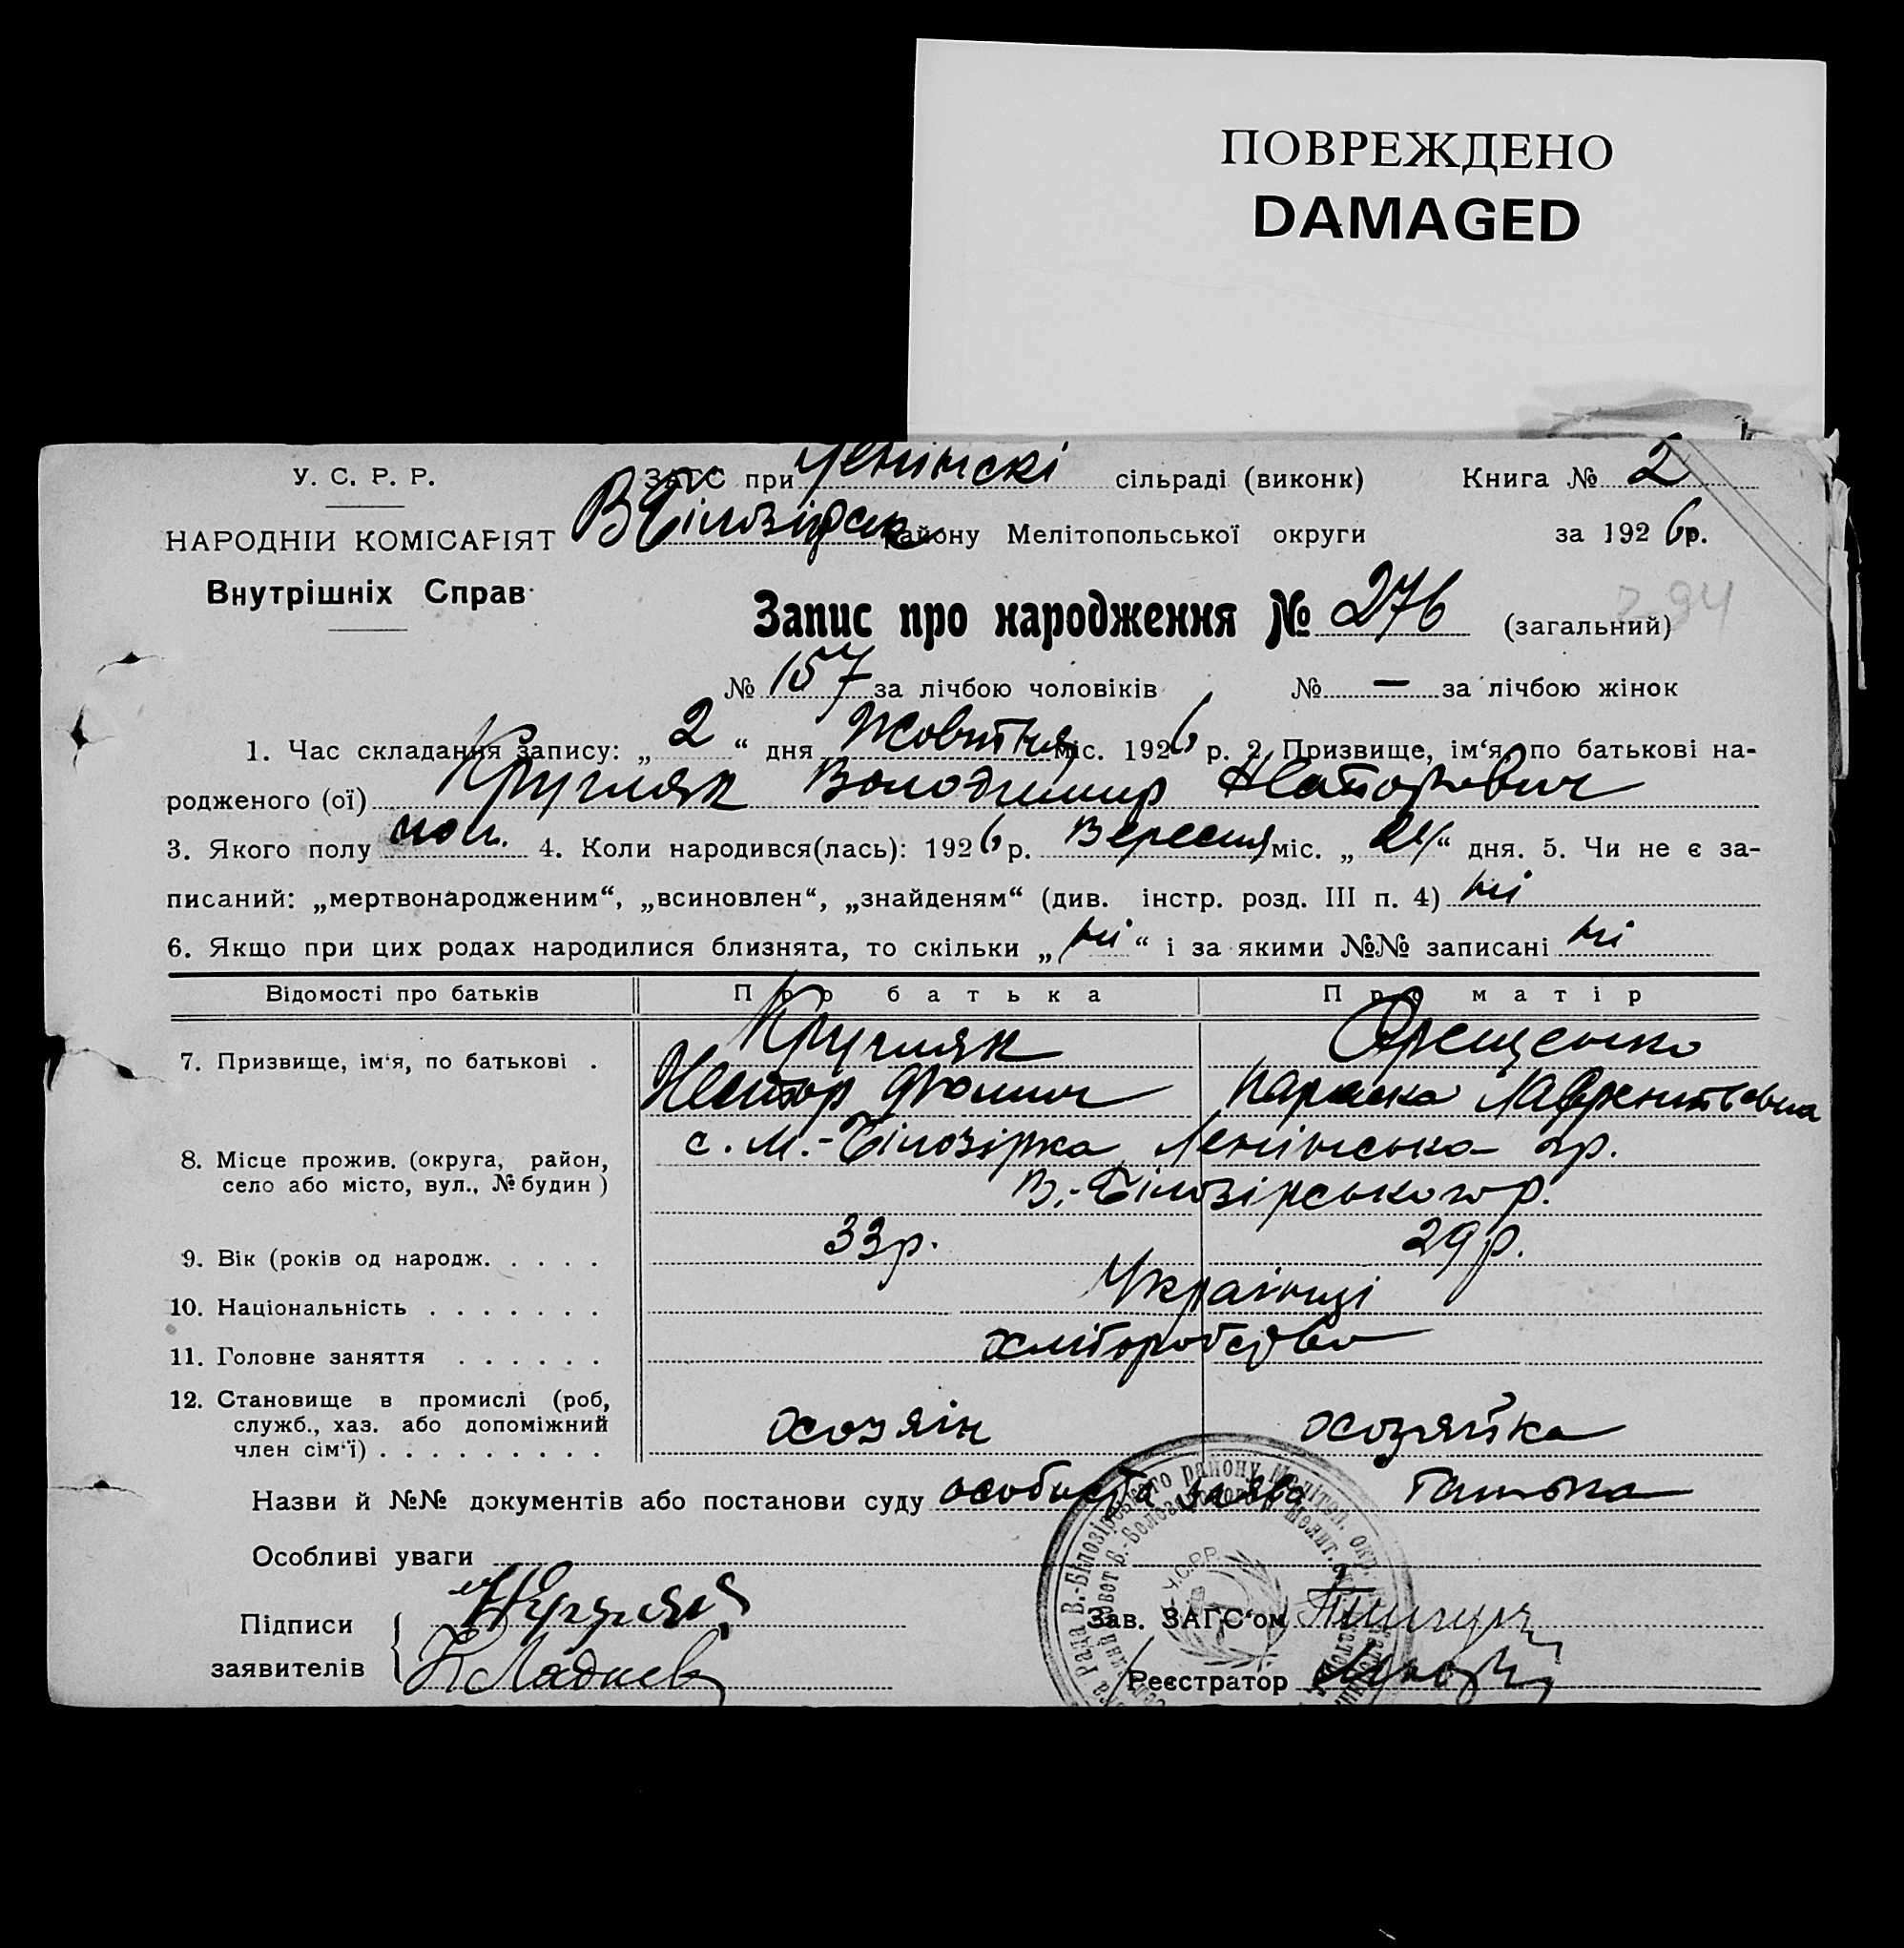 ПОВРЕЖДЕНО
DAMAGED
У. С. Р. Р.
ЗАГС при Ленінскі сільраді (виконк) Книга № 2
НАРОДНІЙ КОМІСАРІЯТ
В Білозірск району Мелітопольської округи за 1926 р.
Внутрішніх Справ
Запис про народження № 276 (загальний)
294
№ 157 за лічбою чоловіків № — за лічбою жінок
1. Час складання запису: „2“ дня Жовтня міс. 1926 р. 2. Призвище, ім‘я, по батькові на-
родженого (ої) Кругляк Володимир Несторович
3. Якого полу чол. 4. Коли народився(лась): 1926 р. Вересня міс. „ “ дня. 5. Чи не є за-
писаний: „мертвонародженим“, „всиновлен“, „знайденям“ (див. інстр. розд. III п. 4) ні
6. Якщо при цих родах народилися близнята, то скільки „ні“ і за якими №№ записані ні
Відомості про батьків Про батька Про матір
7. Призвище, ім‘я, по батькові . Кругляк Орещенко
Нестор Фомич Параска Лаврентьовна
8. Місце прожив. (округа, район, село або місто, вул., № будин) с. М.-Білозірка, Ленінська
В.-Білозірського р.
9. Вік (років од народж. . . . . 33 р. 29 р.
10. Національність . . . . . . . Українці
11. Головне заняття . . . . . . хліборобство
12. Становище в промислі (роб, служб., хаз. або допоміжний член сім‘ї) . . . . . . . . . хозяін хозяйка
Назви й №№ документів або постанови суду особиста заява батька
Особливі уваги
Підписи заявителів Кругляк
К Ладнев
Зав. ЗАГС‘ом
Реєстратор
Рада В.-Білозірського району Мелітоп. окр.
У.С.Р.Р.